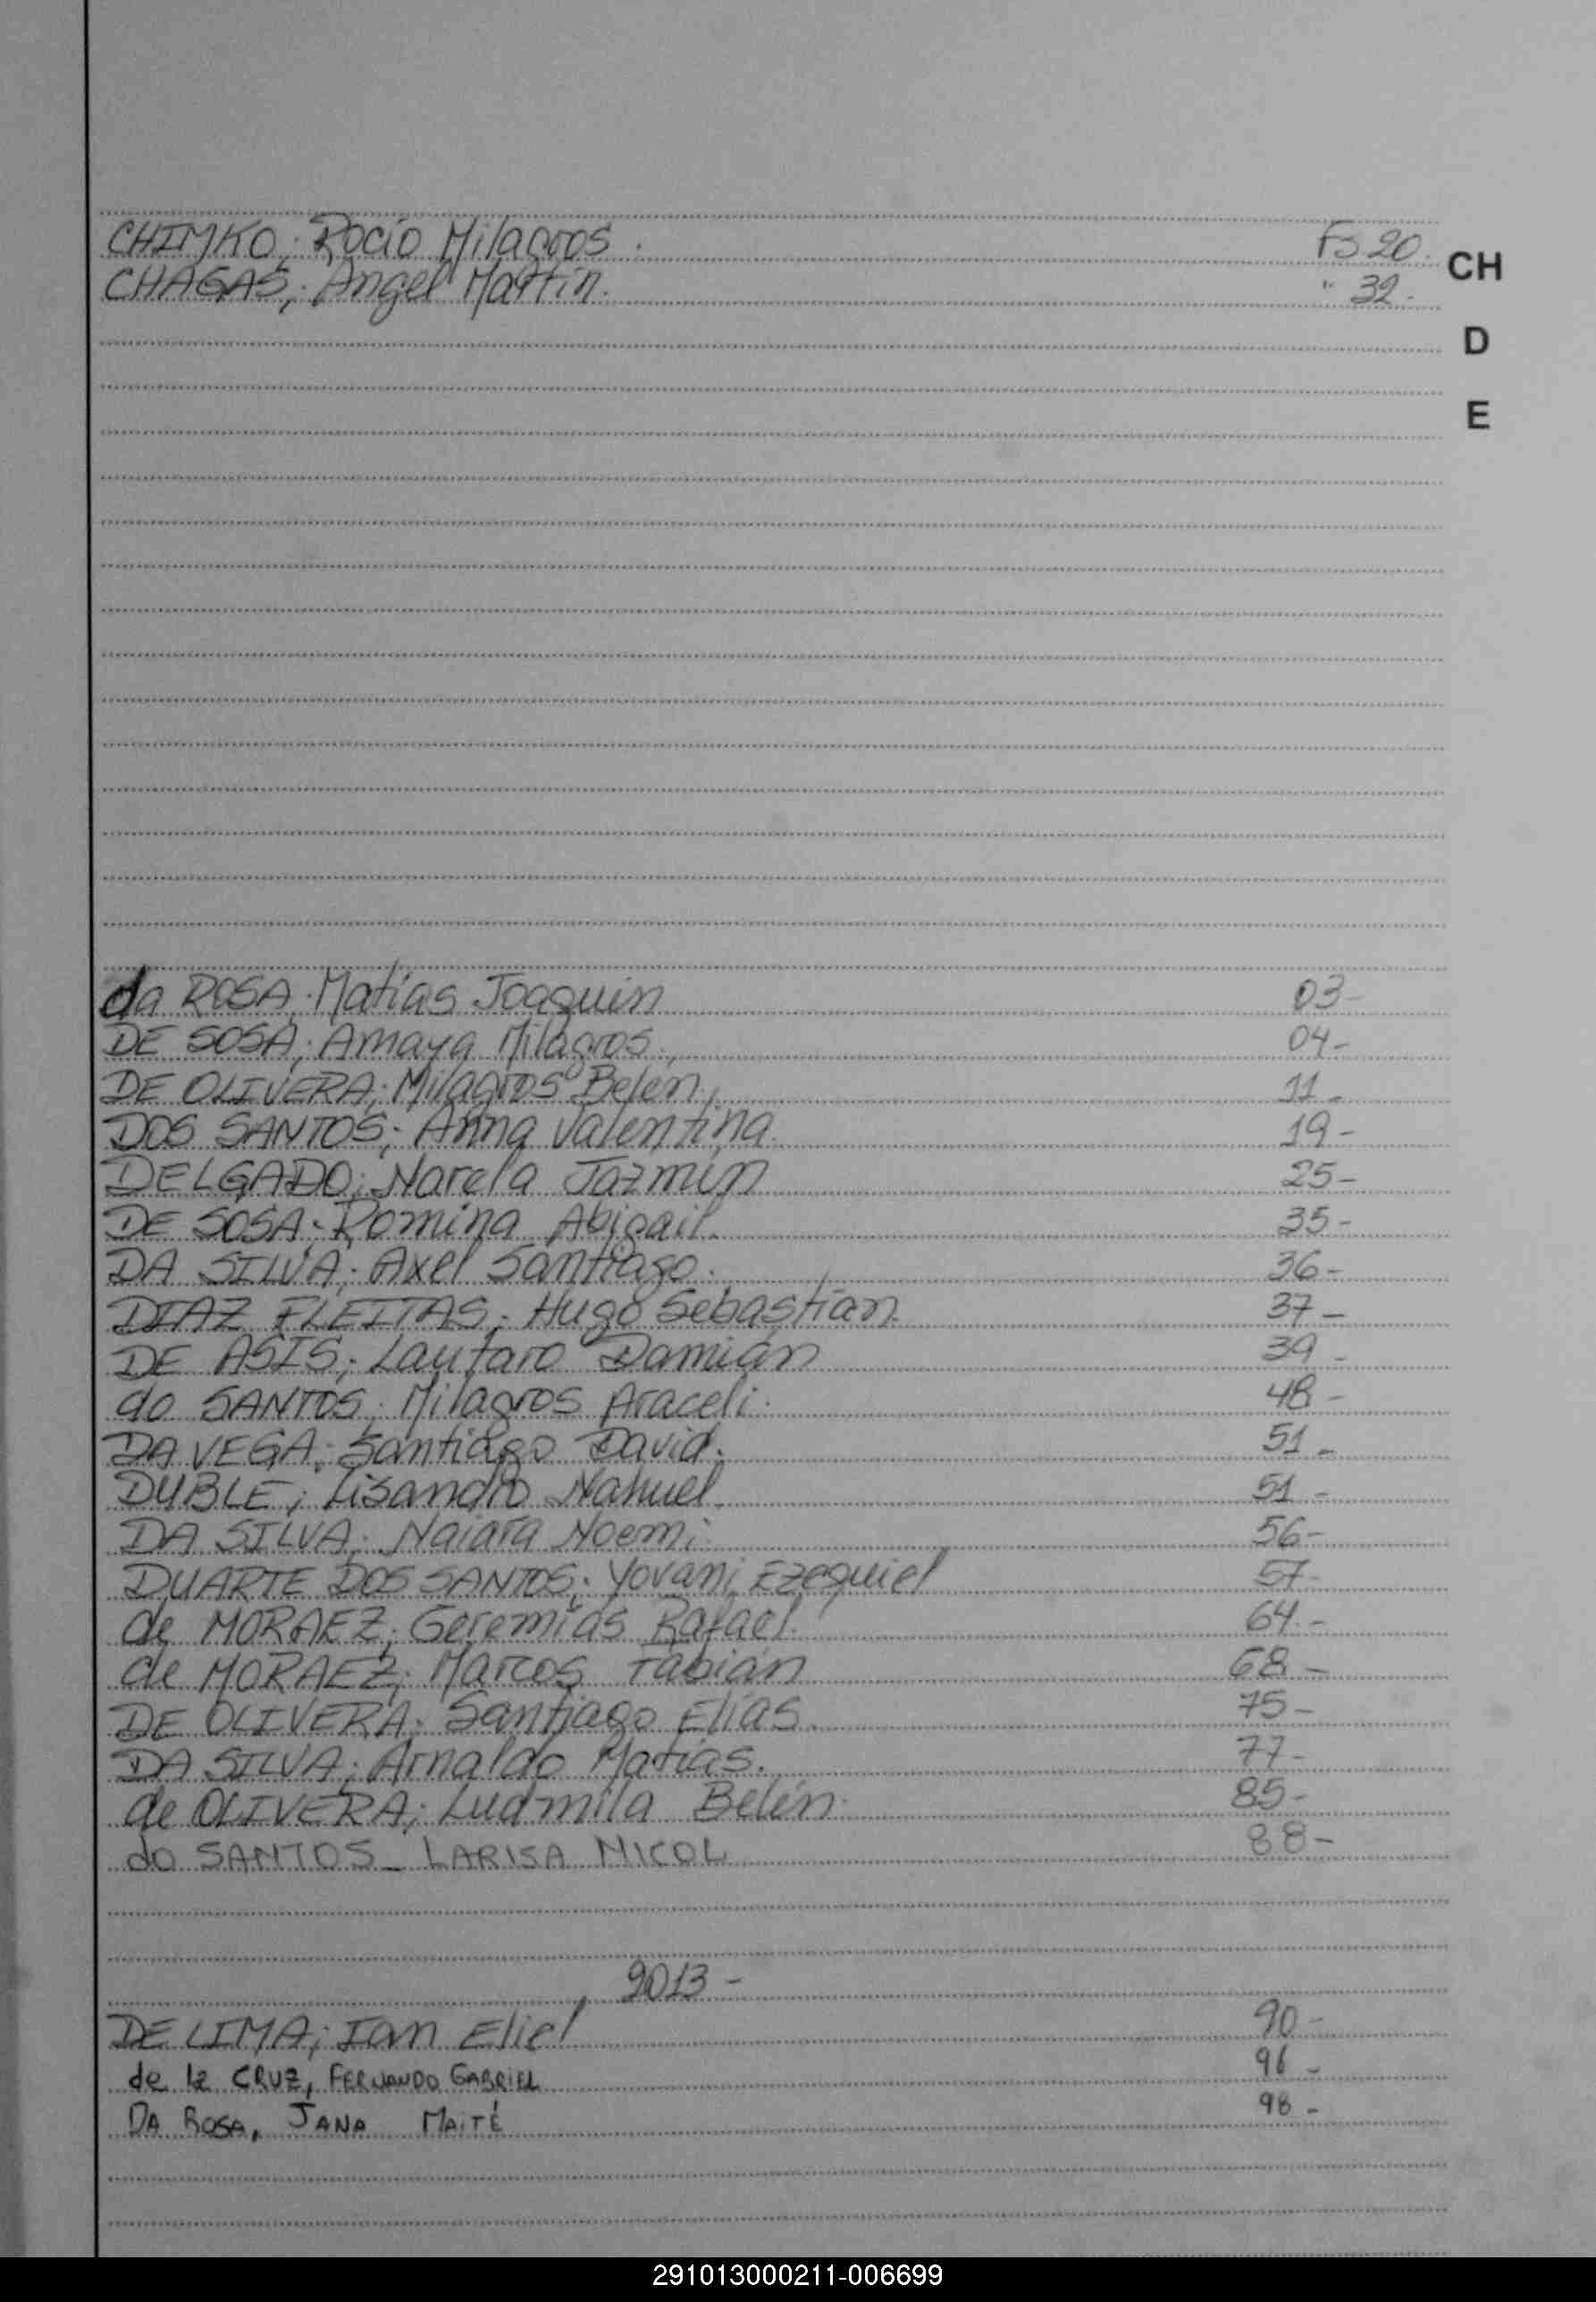 CHIMKO; Rocío Milagros. Fs 20. CH
CHAGAS; Angel Martín. " 32.
D
E
da ROSA; Matías Joaquin 03-
DE SOSA; Amaya Milagros. 04-
DE OLIVERA; Milagros Belen. 11-
DOS SANTOS; Anna Valentina 19-
DELGADO; Narela Jazmín 25-
DE SOSA; Romina Abigail. 35-
DA SILVA; Axel Santiago. 36-
DIAZ FLEITAS; Hugo Sebastián. 37-
DE ASIS; Lautaro Damián 39-
do SANTOS; Milagros Araceli. 48-
DA VEGA; Santiago David. 51-
DUBLE; Lisandro Nahuel. 51-
DA SILVA; Naiara Noemi 56-
DUARTE DOS SANTOS; Yovani Ezequiel 57-
de MORAEZ; Geremías Rafael. 64-
de MORAEZ; Marcos Fabián 68-
DE OLIVERA; Santiago Elías. 75-
DA SILVA; Arnaldo Matías. 77-
de OLIVERA; Ludmila Belén. 85-
do SANTOS_ LARISA NICOL 88-
2013-
DE LIMA; Ian Eliel 90-
de la CRUZ, FERNANDO GABRIEL 96-
DA ROSA, JANA MAITÉ 98-
291013000211-006699